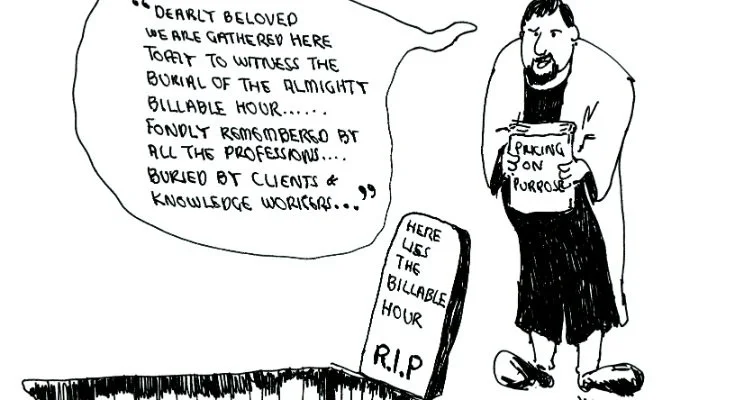 “DEARLY BELOVED
WE ARE GATHERED HERE
TODAY TO WITNESS THE
BURIAL OF THE ALMIGHTY
BILLABLE HOUR......
FONDLY REMEMBERED BY
ALL THE PROFESSIONS....
BURIED BY CLIENTS &
KNOWLEDGE WORKERS...”
PRICING
ON
PURPOSE
HERE
LIES
THE
BILLABLE
HOUR
R.I.P